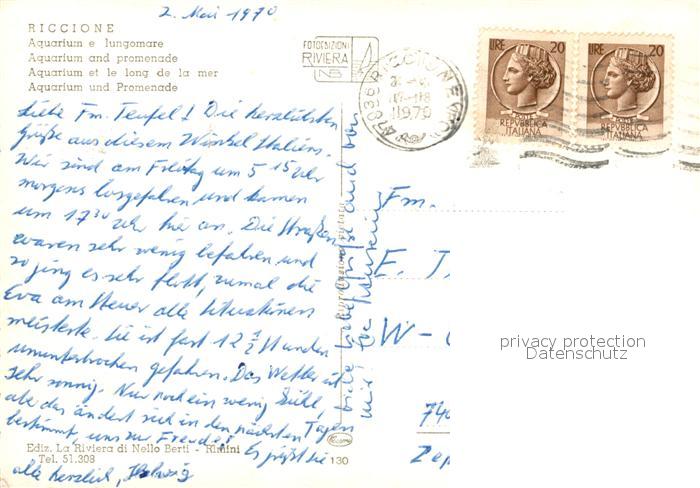 2. Mai 1970
RICCIONE
Aquarium e lungomare
Aquarium and promenade
Aquarium et le long de la mer
Aquarium und Promenade
FOTOEDIZIONI
RIVIERA
NB
RICCIONE
1970
LIRE 20
REPVBBLICA
ITALIANA
LIRE 20
REPVBBLICA
ITALIANA
Liebe Frn. Teufel! Die herzlichsten
Grüße aus diesem Winkel Italiens.
Wir sind am Freitag um 5 15 Uhr
morgens losgefahren und kamen
um 17 30 Uhr hier an. Die Straßen
waren sehr wenig befahren und
so ging es sehr flott, zumal die
Eva am Steuer alle Situationen
meisterte. Sie ist fast 12 1/2 Stunden
ununterbrochen gefahren. Das Wetter ist
sehr sonnig. Nur noch ein wenig kühl,
aber das ändert sich in den nächsten Tagen
bestimmt, uns zur Freude! Es grüßt Sie
alle herzlich, Helwig
viele liebe Grüße auch von
mir
Frn.
E. T
W -
740
privacy protection
Datenschutz
Ediz. La Riviera di Nello Berti - Rimini
Tel. 51.308
130